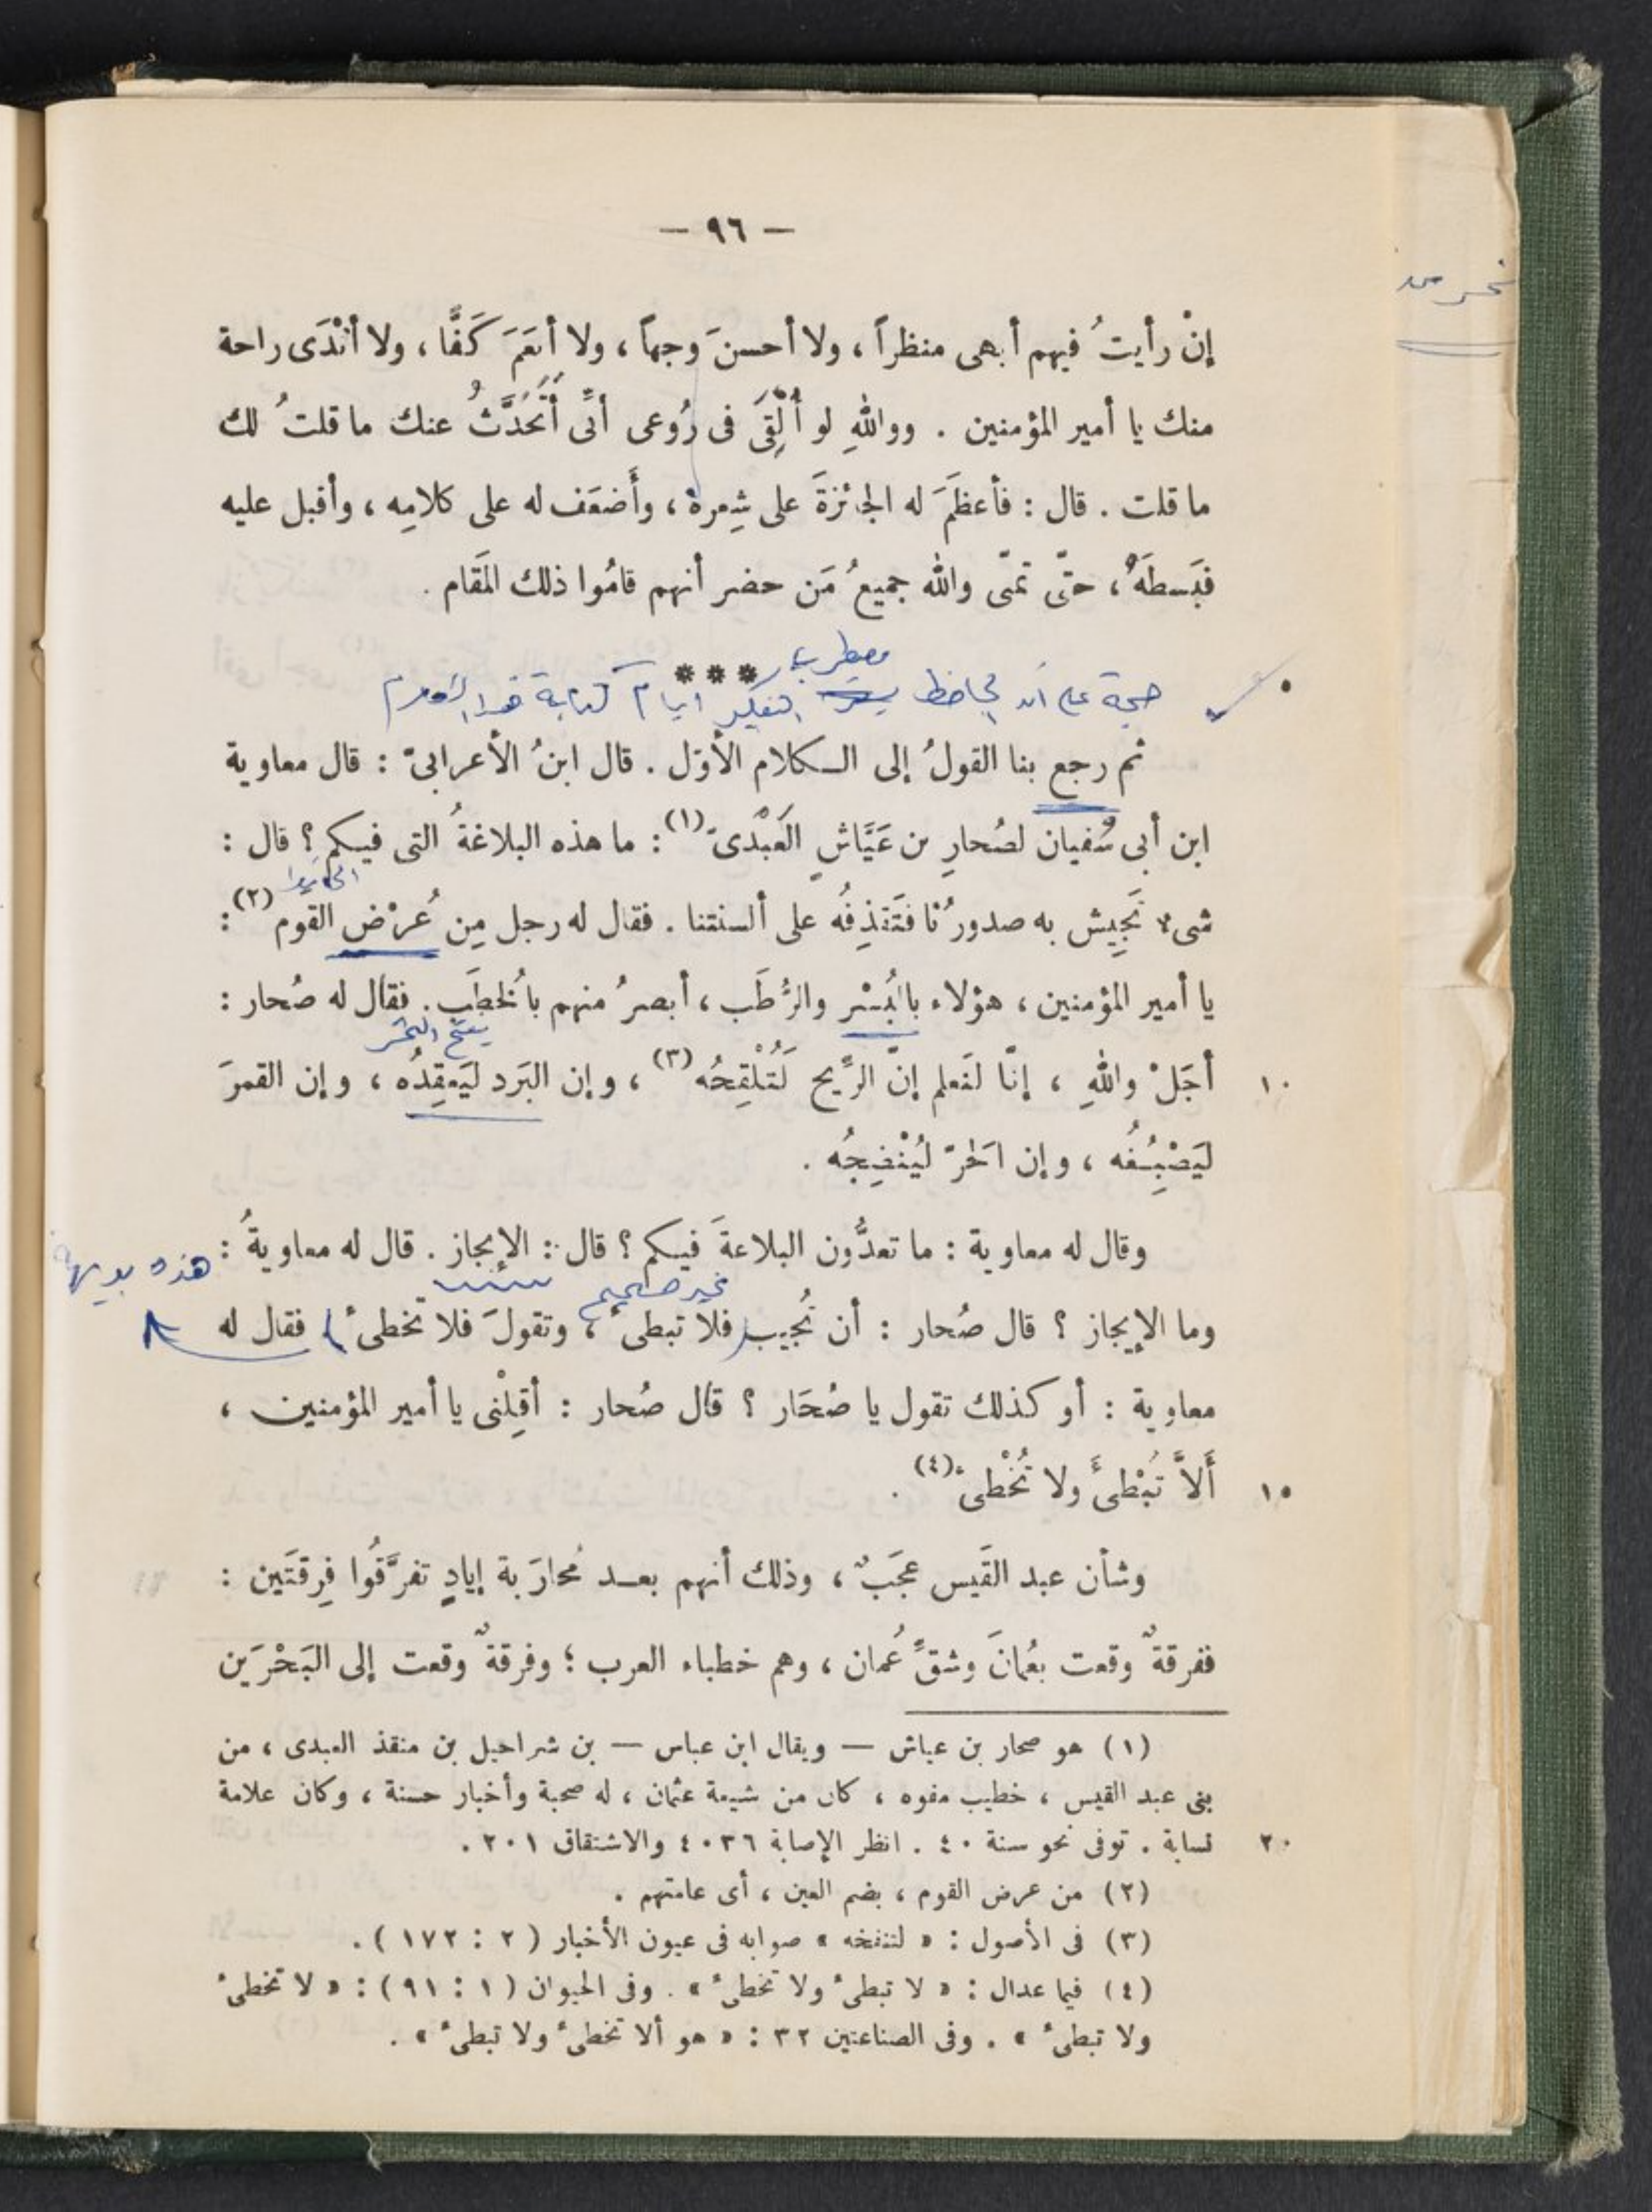 — ٩٦ —
إنْ رأيتُ فيهم أبهى منظراً ، ولا أحسنَ وجهاً ، ولا أنعَمَ كَفًّا ، ولا أنْدَى راحة
منك يا أمير المؤمنين . وواللهِ لو أُلْقِىَ فى رُوعى أنِّى أَتَحَدَّثُ عنك ما قلتُ لك
ما قلت . قال : فأعظَمَ له الجائزةَ على شِعره ، وأَضعَف له على كلامِه ، وأقبل عليه
فبَسطَهُ ، حتّى تمنّى والله جميعُ مَن حضر أنهم قامُوا ذلك المَقام .
مضطرب
***
حجة على أن الجاحظ التفكير أيام كتابة هذا
٥
ثم رجع بنا القولُ إلى الكلام الأوّل . قال ابنُ الأعرابىّ : قال معاوية
ابن أبى سُفيان لصُحارِ بن عَيَّاشٍ العَبْدىّ (١) : ما هذه البلاغةُ التى فيكم ؟ قال :
شىءٌ تَجِيش به صدورُنا فتَقذِفُه على ألسنتنا . فقال له رجل مِن عُرْض القوم (٢) :
يا أمير المؤمنين ، هؤلاء بالبُسْر والرُّطَب ، أبصرُ منهم بالخُطَب . فقال له صُحار :
١٠ أجَلْ واللهِ ، إنّا لنَعلم إنّ الرِّيح لَتُلْقِحُه (٣) ، وإن البَرد ليَعقِدُه ، وإن القمرَ
ليَصْبِغُه ، وإن الحَرّ ليُنْضِجُه .
وقال له معاوية : ما تعدُّون البلاغةَ فيكم ؟ قال : الإيجاز . قال له معاويةُ : هذه
غير صحيح
وما الإيجاز ؟ قال صُحار : أن تُجيب فلا تبطىءُ ، وتقولَ فلا تخطىءُ ) فقال له
معاوية : أو كذلك تقول يا صُحَار ؟ قال صُحار : أقِلْنى يا أمير المؤمنين ،
١٥ أَلاَّ تُبْطئَ ولا تُخْطىءَ (٤) .
وشأن عبد القَيس عَجَبٌ ، وذلك أنهم بعد مُحارَبة إيادٍ تفرَّقُوا فِرقتَين :
ففرقةٌ وقعت بعُمانَ وشقِّ عُمان ، وهم خطباء العرب ؛ وفرقةٌ وقعت إلى البَحْرَين
(١) هو صحار بن عياش — ويقال ابن عباس — بن شراحيل بن منقذ العبدى ، من
بنى عبد القيس ، خطيب مفوه ، كان من شيعة عثمان ، له صحبة وأخبار حسنة ، وكان علامة
٢٠ نسابة . توفى نحو سنة ٤٠ . انظر الإصابة ٤٠٣٦ والاشتقاق ٢٠١ .
(٢) من عرض القوم ، بضم العين ، أى عامتهم .
(٣) فى الأصول : « لتنفخه » صوابه فى عيون الأخبار ( ٢ : ١٧٢ ) .
(٤) فيما عدا ل : « لا تبطىء ولا تخطىء » . وفى الحيوان ( ١ : ٩١ ) : « لا تخطىء
ولا تبطىء » . وفى الصناعتين ٣٢ : « هو ألا تخطىء ولا تبطىء » .